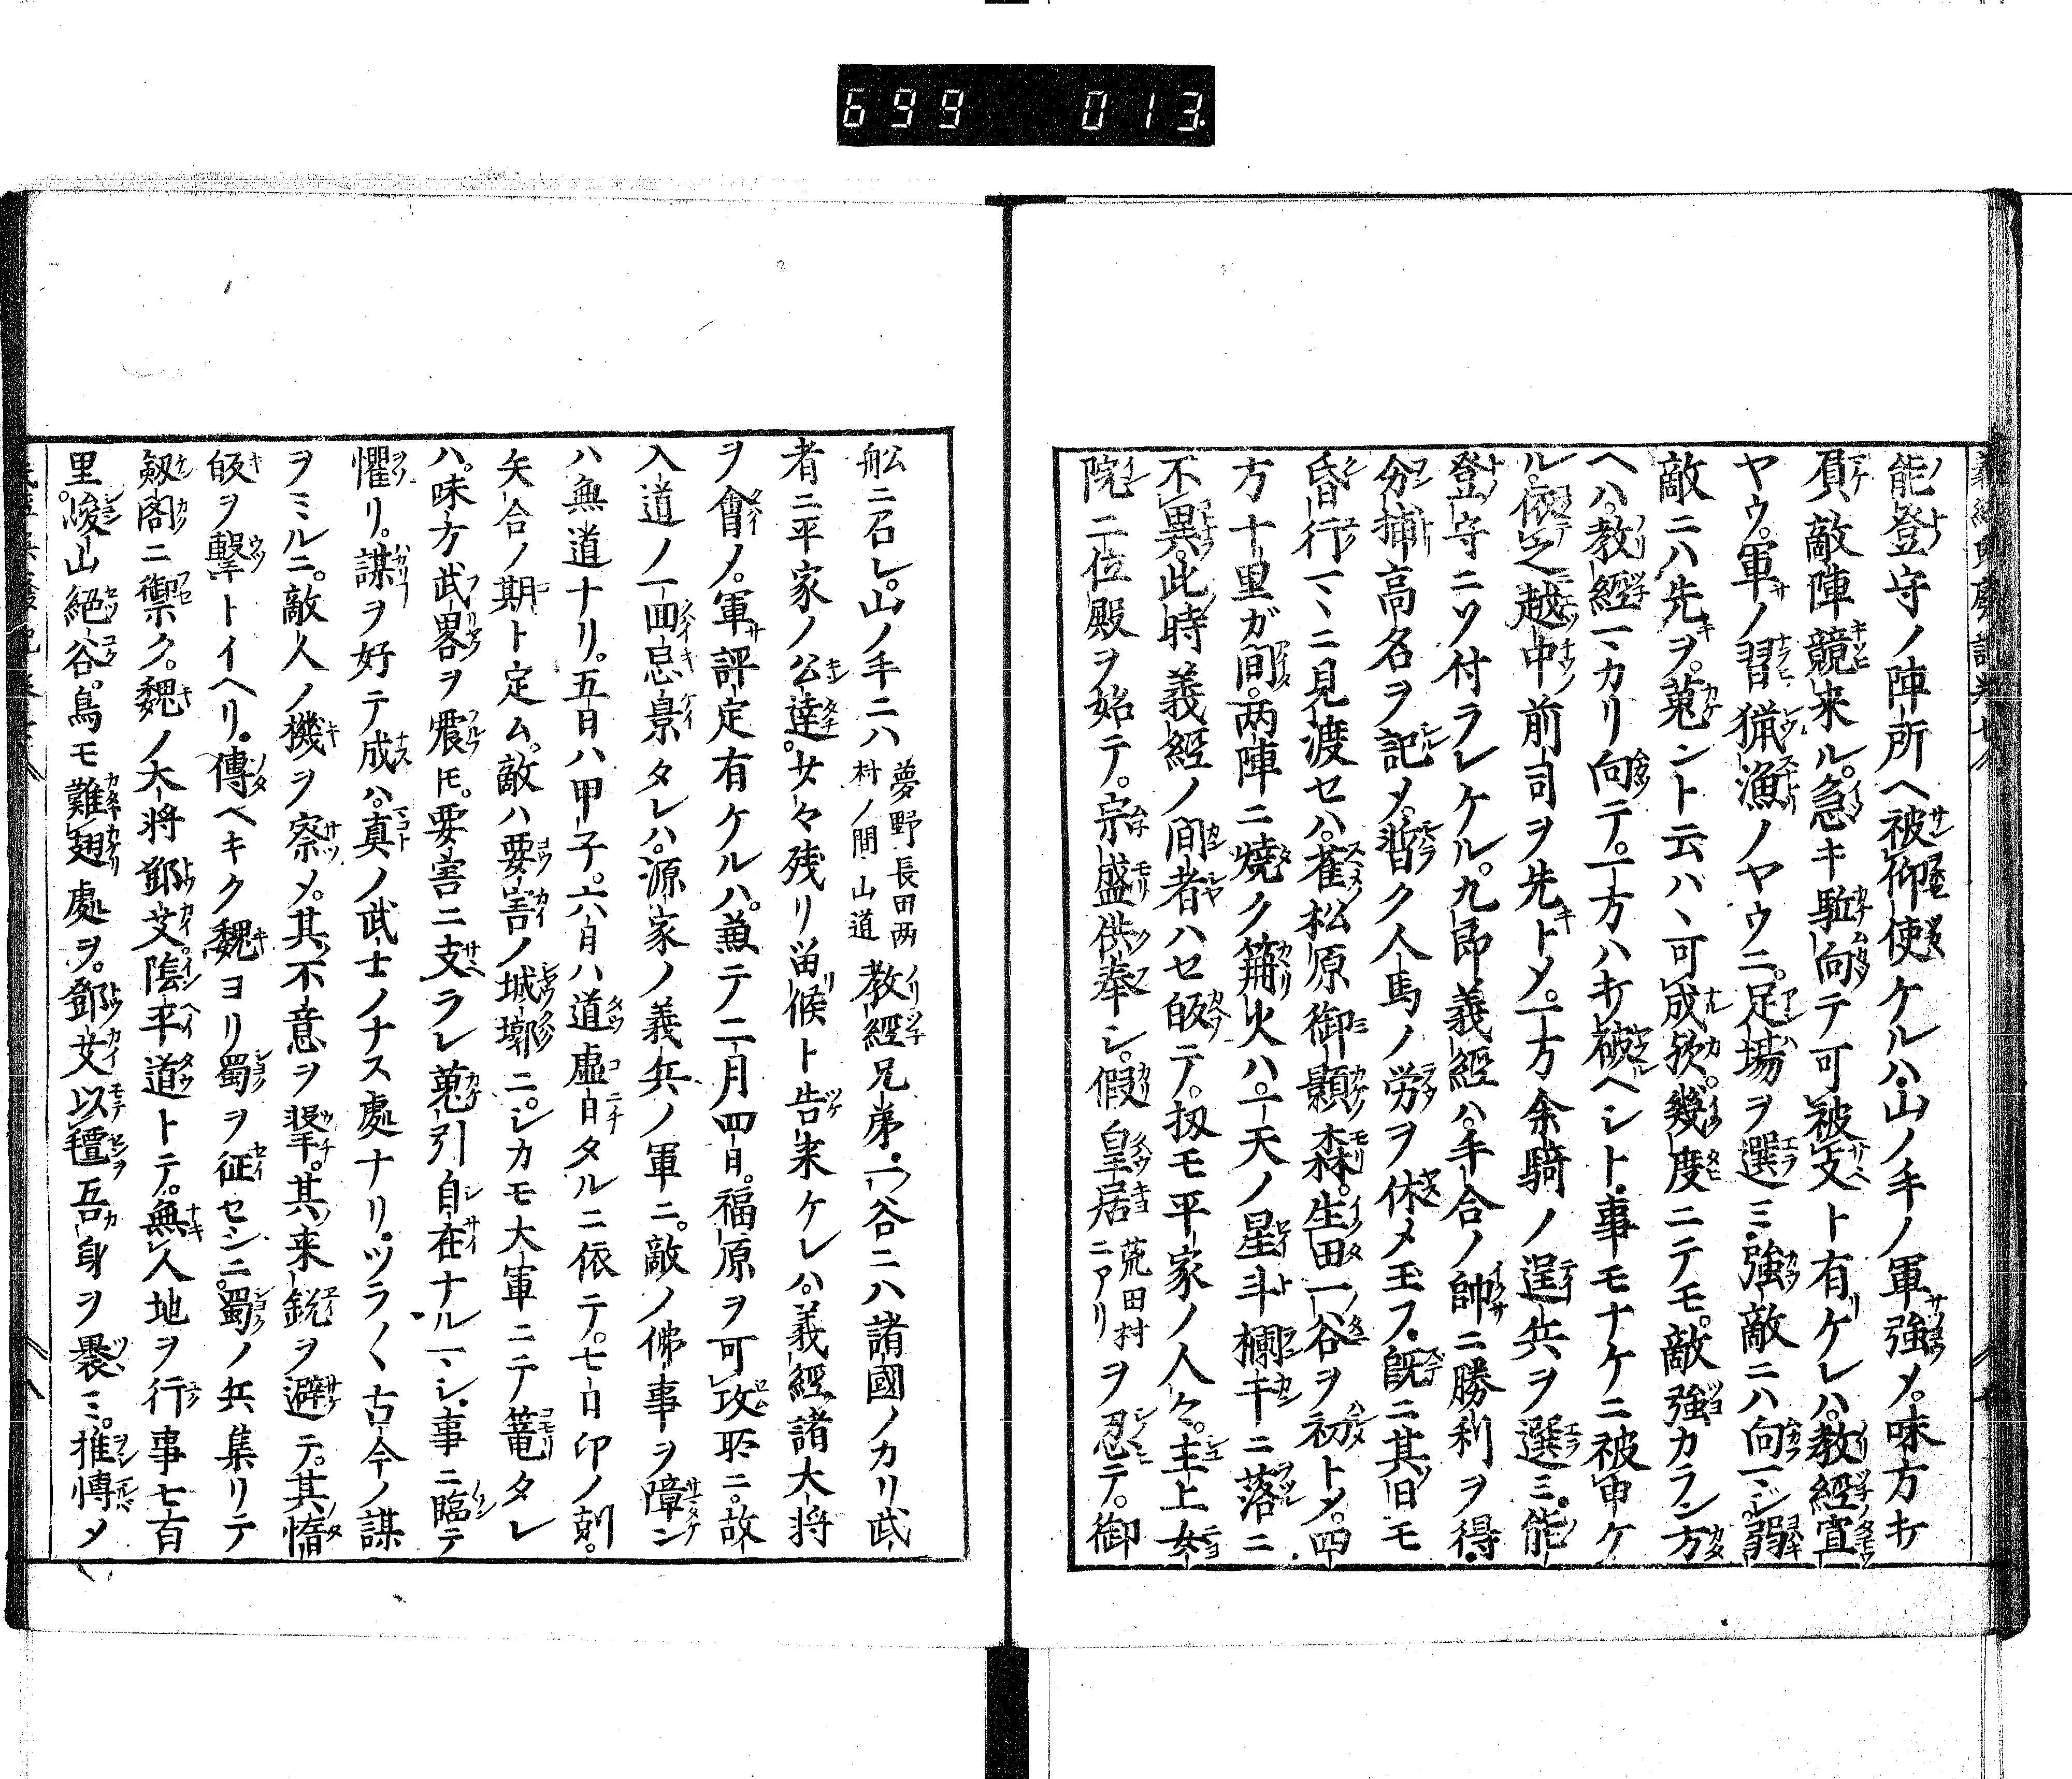 699 013
能登守ノ陣所ヘ被仰使ケルハ山ノ手ノ軍強メ。味方キ
負敵陣競来ル。急キ駈向テ可被支ト有ケレハ。教經宣
ヤウ。軍ノ習猟漁ノヤウニ。足場ヲ選ミ。強敵ニハ向マジ。弱
敵ニハ先ヲ。蒐ント云ハヽ可成欤。幾度ニテモ。敵強カラン方
ヘハ。教經マカリ向テ。一方ハキ破ヘシト。事モナケニ被申ケ
ル。依之越中前司ヲ先トメ。一万余騎ノ逞兵ヲ選ミ。能
登守ニソ付ラレケル。九郎義經ハ。手合ノ帥ニ勝利ヲ得。
分捕高名ヲ記メ。暫ク人馬ノ労ヲ休メ玉フ。既ニ其日モ
昏行マヽニ見渡セハ。雀松原御影森。生田一谷ヲ初トメ。四
方十里ガ間。両陣ニ燒ク篝火ハ。一天ノ星斗欄干ニ落ニ
不異。此時義經ノ間者ハセ皈テ。扨モ平家ノ人々。主上女
院二位殿ヲ始テ。宗盛供奉シ。假皇居荒田村ニアリヲ忍テ。御
舩ニ召レ。山ノ手ニハ夢野長田両村ノ間山道教經兄弟。一ノ谷ニハ諸國ノカリ武
者ニ平家ノ公達。少々残リ畄候ト告来ケレハ。義經諸大将
ヲ會ノ。軍評定有ケルハ。兼テ二月四日。福原ヲ可攻𫆀ニ。故
入道ノ一回忌景タレハ。源家ノ義兵ノ軍ニ。敵ノ佛事ヲ障ン
ハ無道ナリ。五日ハ甲子。六日ハ道虚日タルニ依テ。七日卯ノ刻。
矢合ノ期ト定ム。敵ハ要害ノ城墎ニ。シカモ大軍ニテ篭タレ
ハ。味方武畧ヲ震𪜈。要害ニ支ラレ蒐引自在ナルマシ。事ニ臨テ
懼リ。謀ヲ好テ成ハ。真ノ武士ノナス處ナリ。ツラ〱古今ノ謀
ヲミルニ。敵人ノ機ヲ察メ。其不意ヲ撃。其来鋭ヲ避テ。其惰
皈ヲ撃トイヘリ。傳ヘキク魏ヨリ蜀ヲ征セシニ。蜀ノ兵集リテ
劔閣ニ禦ク。魏ノ大将鄧艾。陰平道トテ。無人地ヲ行事七百
里。峻山絶谷。鳥モ難翅處ヲ。鄧艾以氊吾身ヲ褁ミ。推愽メ